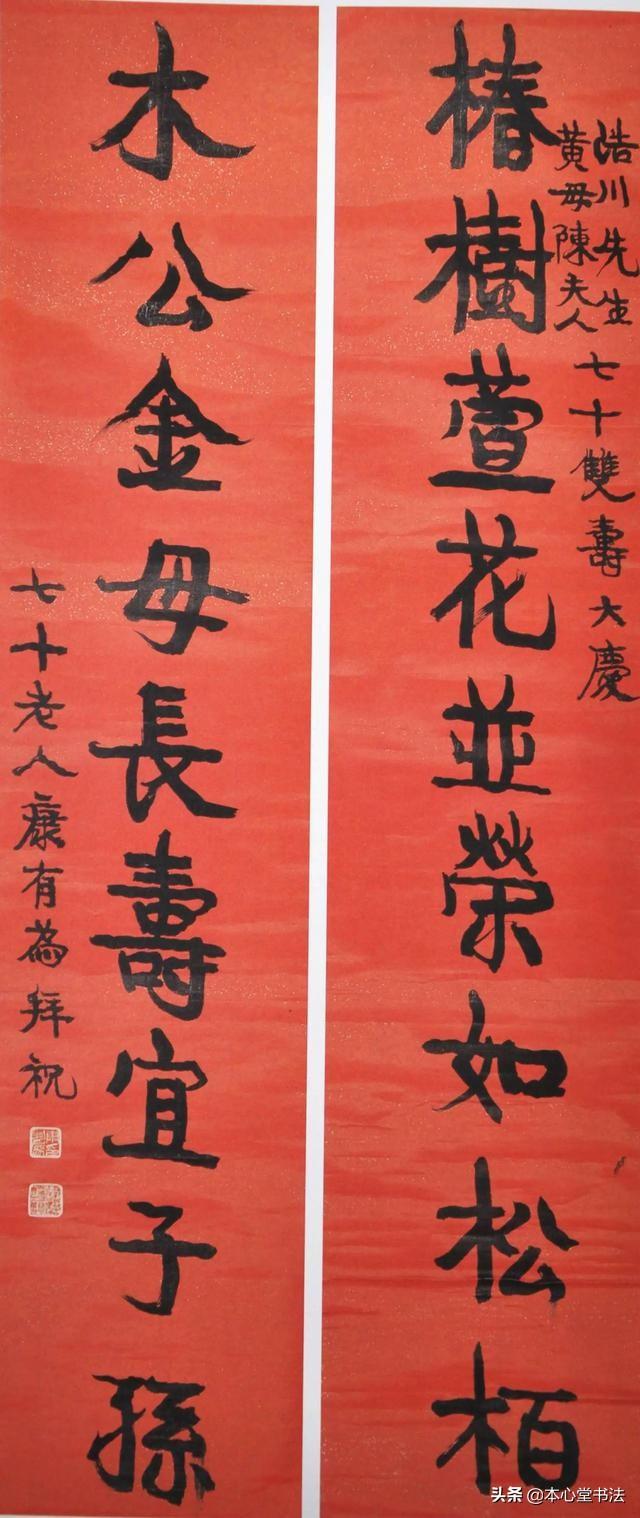 浩川先生
黄母陳夫人
七十雙壽大慶
椿樹萱花並榮如松柏
木公金母長壽宜子孫
七十老人康有為拜祝
头条 @本心堂书法